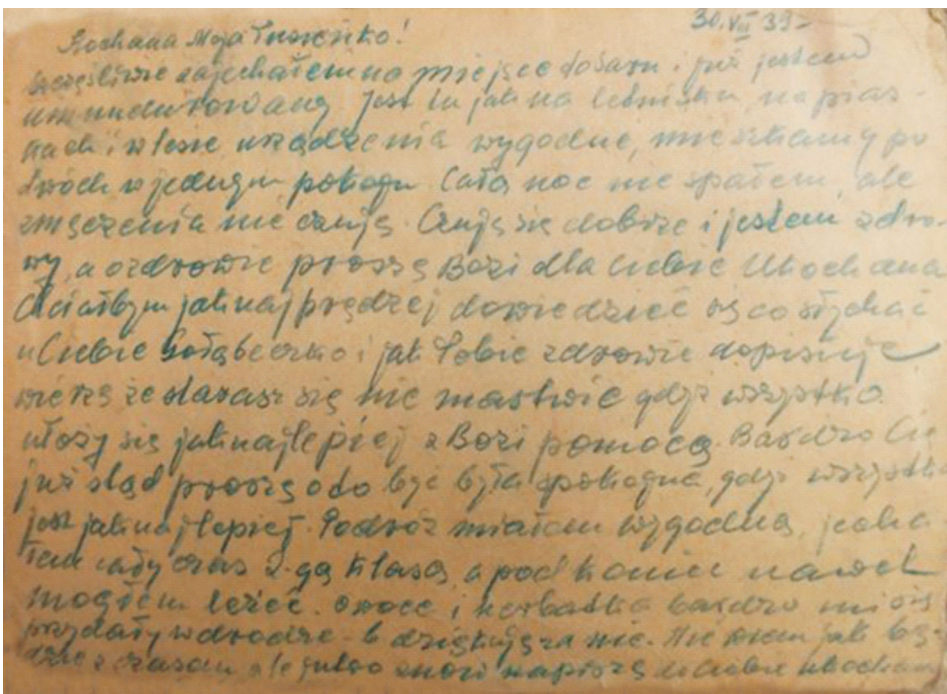 30.VIII 39-
Kochana Moja !
Szczęśliwie zajechałem na miejsce dojazdu i już jestem
umundurowany Jest tu jak na letnisku, na pias-
kach i w lesie, urządzenia wygodne, mieszkamy po
dwóch w jednym pokoju. Całą noc nie spałem, ale
zmęczenia nie czuję. Czuję się dobrze i jestem zdro-
wy, a o zdrowie proszę Bozi dla Ciebie Ukochana
Chciałbym jaknajprędzej dowiedzieć się co słychać
u Ciebie Gołąbeczko i jak Tobie zdrowie dopisuje
wierzę że starasz się nie martwić gdyż wszystko
ułoży się jaknajlepiej z Bozi pomocą. Bardzo Cię
już stąd proszę o to byś była spokojna, gdyż wszystko
jest jaknajlepiej. Podróż miałem wygodną, jecha
łem cały czas 2-gą klasą, a pod koniec nawet
mogłem leżeć. Owoce i herbatka bardzo mi się
przydały w drodze - b. dziękuję za nie. Nie wiem jak bę-
dzie z czasem ale jutro znów napiszę do Ciebie ukochana